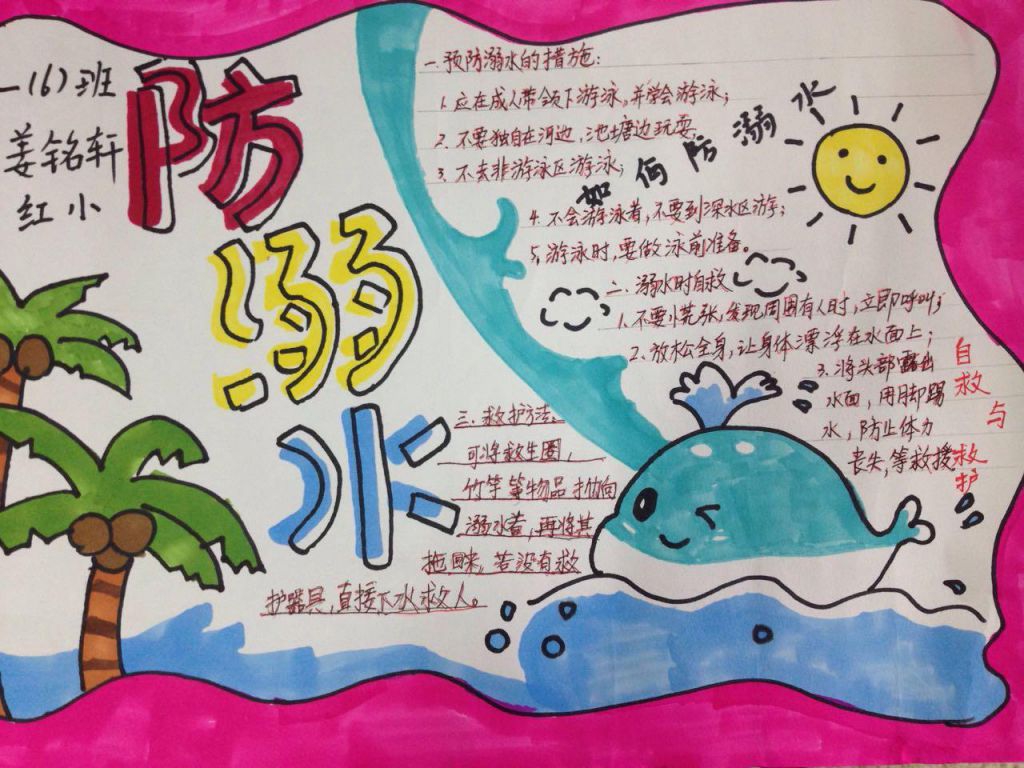 一(6)班
姜铭轩
红小
防
溺
水
如何防溺水
一.预防溺水的措施:
1.应在成人带领下游泳,并学会游泳;
2.不要独自在河边、池塘边玩耍
3.不去非游泳区游泳;
4.不会游泳者,不要到深水区游;
5,游泳时,要做泳前准备。
二、溺水时自救
1、不要慌张,发现周围有人时,立即呼叫;
2、放松全身,让身体漂浮在水面上;
3.将头部露出
水面,用脚踢
水,防止体力
丧失,等救援
自救与救护
三.救护方法。
可将救生圈,
竹竿等物品抛向
溺水者,再将其
拖回来,若没有救
护器具,直接下水救人。